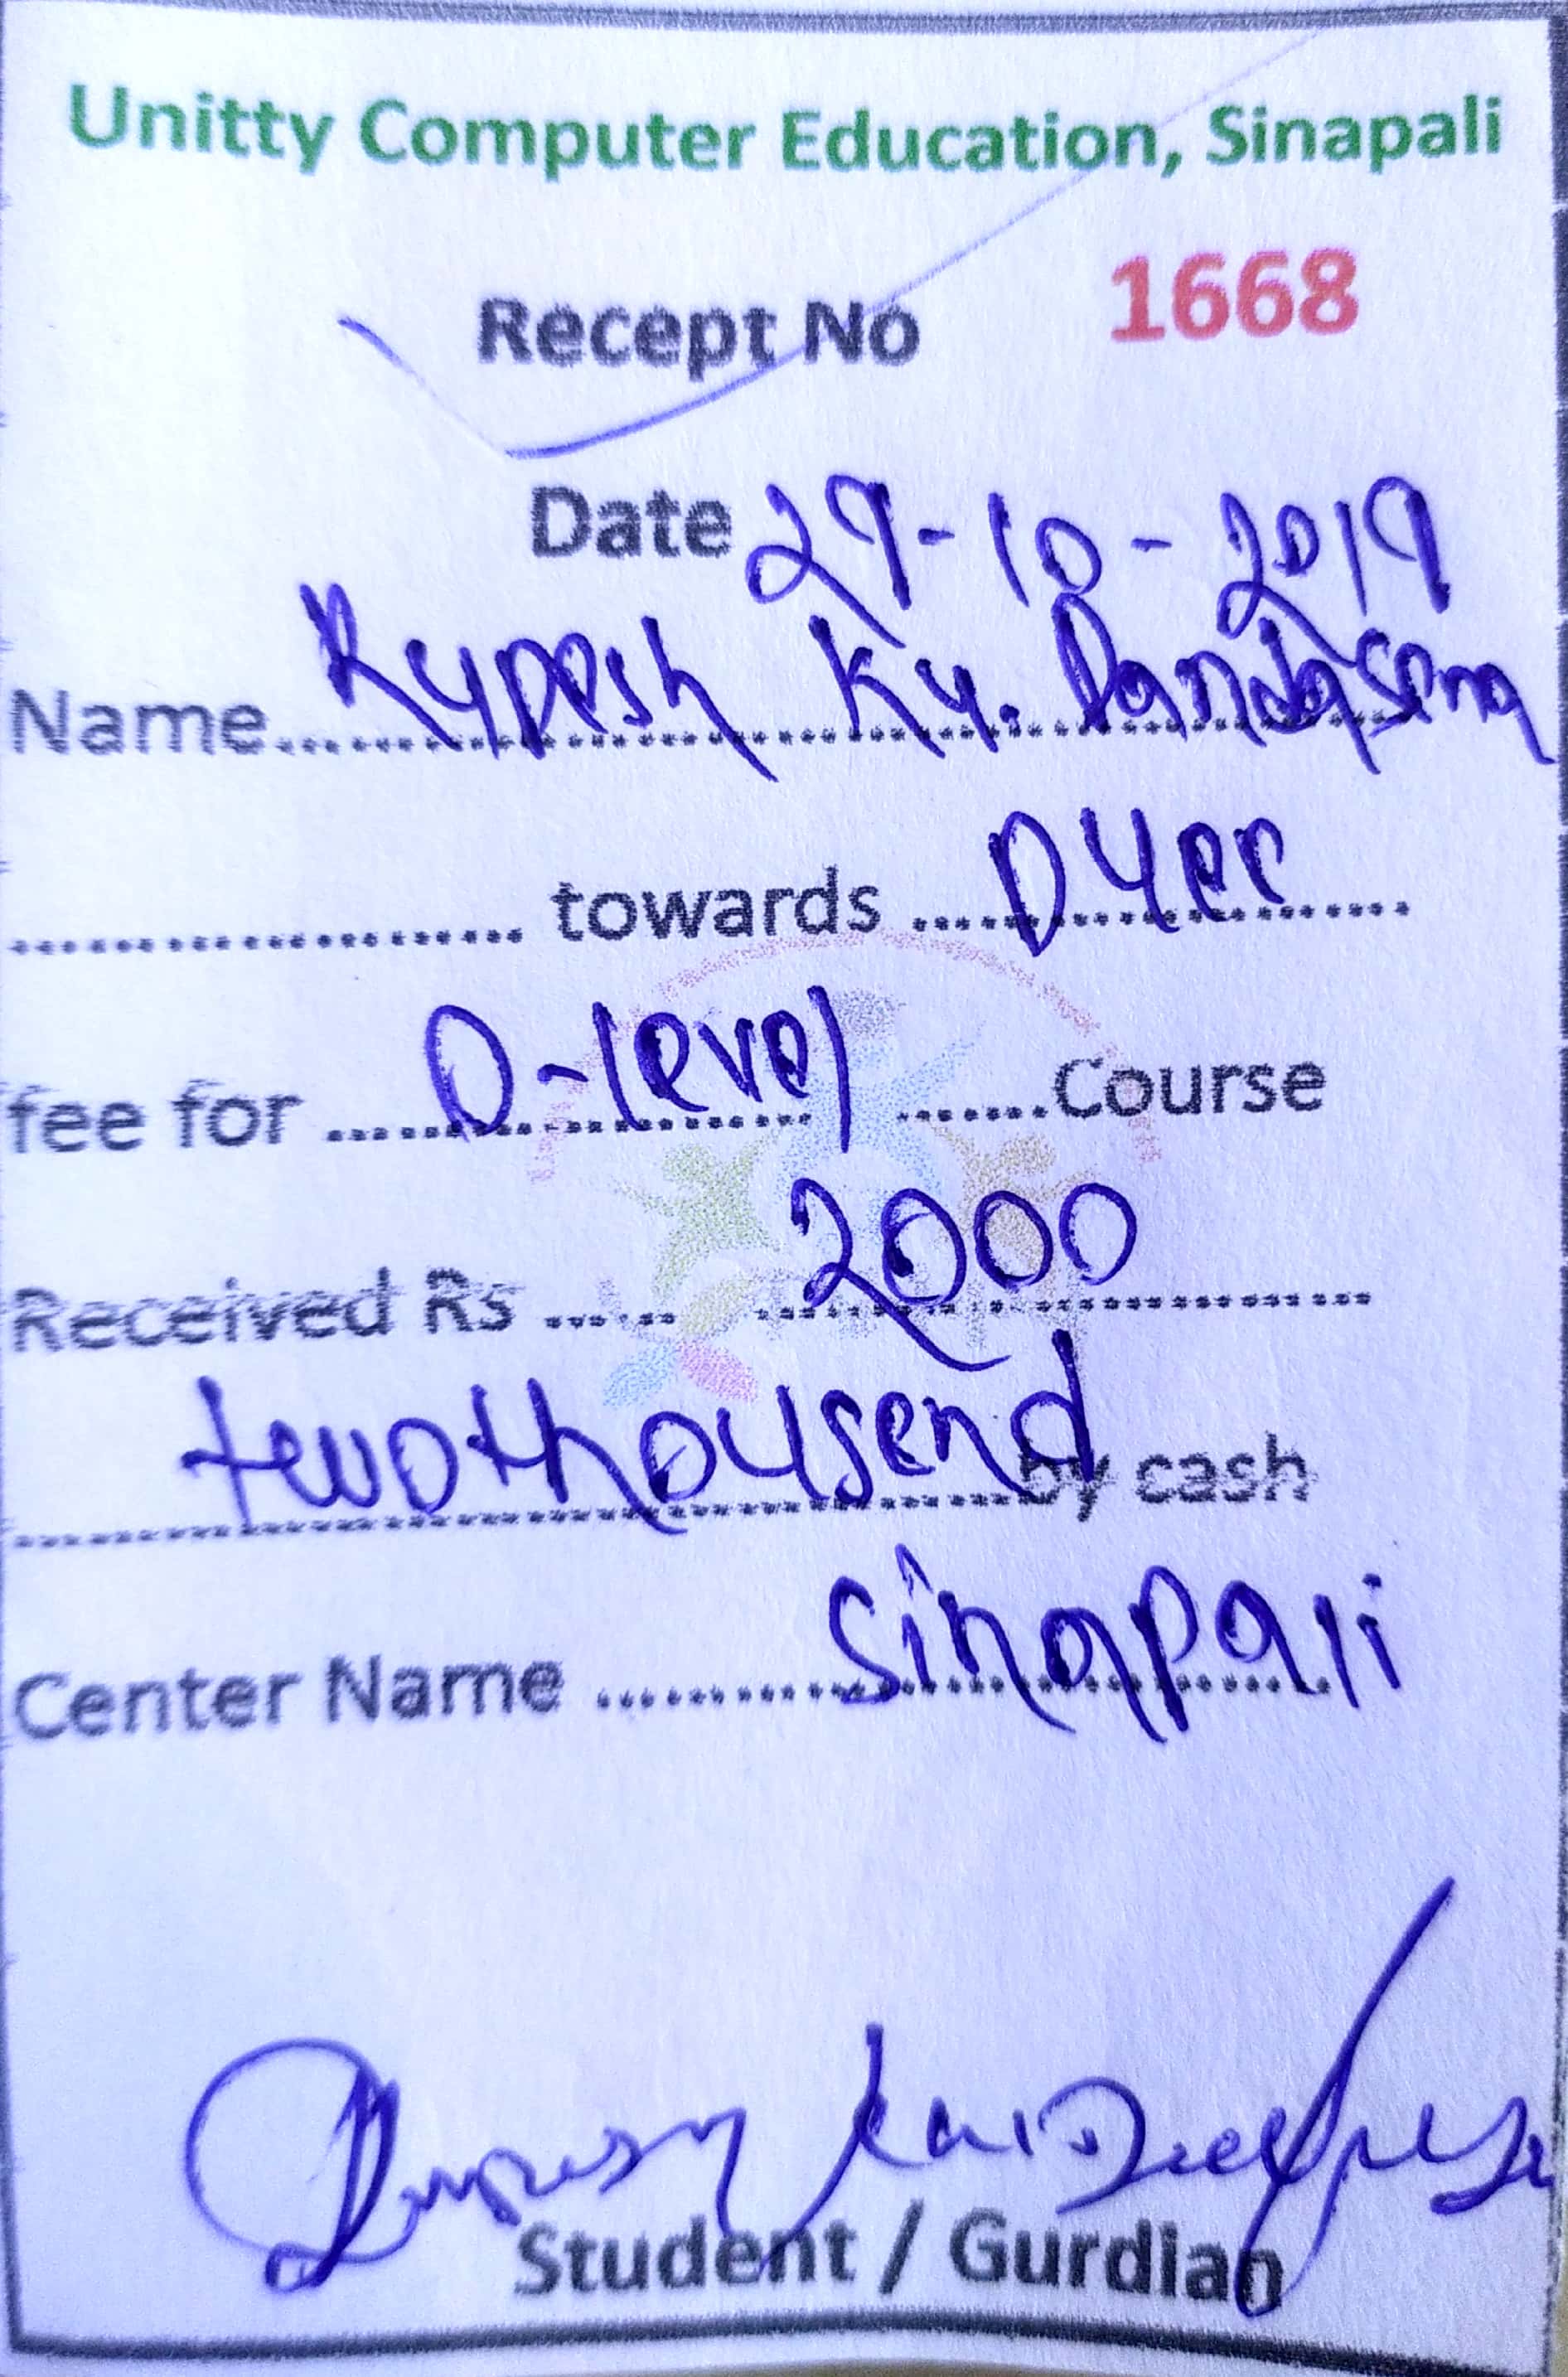 Unitty Computer Education, Sinapali
Recept No 1668
Date 29-10-2019
Name Rupesh Ku. Dandasena
towards Duee
fee for O-level Course
Received Rs 2000
twothousend by cash
Center Name Sinapali
Student / Gurdian